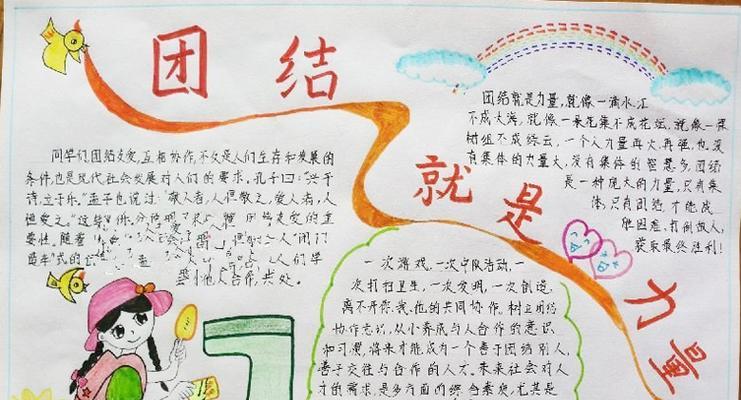 团结
就是
力量
同学们,团结友爱,互相协作,不仅是人们生存和发展的
条件,也是现代社会发展对人们的要求。孔子曰:“兴于
诗,立于乐。”孟子也说过:“敬人者,人恒敬之,爱人者,人
恒爱之。”这些
要性。随着
人“闭门
造车”式的
人们学
人合作,共处。
团结就是力量,就像一滴水汇
不成大海,就像一朵花集不成花坛,就像一棵
树组不成绿云,一个人力量再大,再强,也没
有集体的力量大,没有集体的智慧多,团结
是一种庞大的力量,只有集
体,只有团结,才能战
胜困难,打倒敌人,
获取最终胜利!
一次游戏,一次中队活动,一
次打扫卫生,一次发明,一次创造,
离不开你、我、他的共同协作。树立团结
协作意识,从小养成与人合作的意识
和习惯,将来才能成为一个善于团结别人,
善于交往与合作的人才。未来社会对人
才的需求,是多方面的综合素质,尤其是